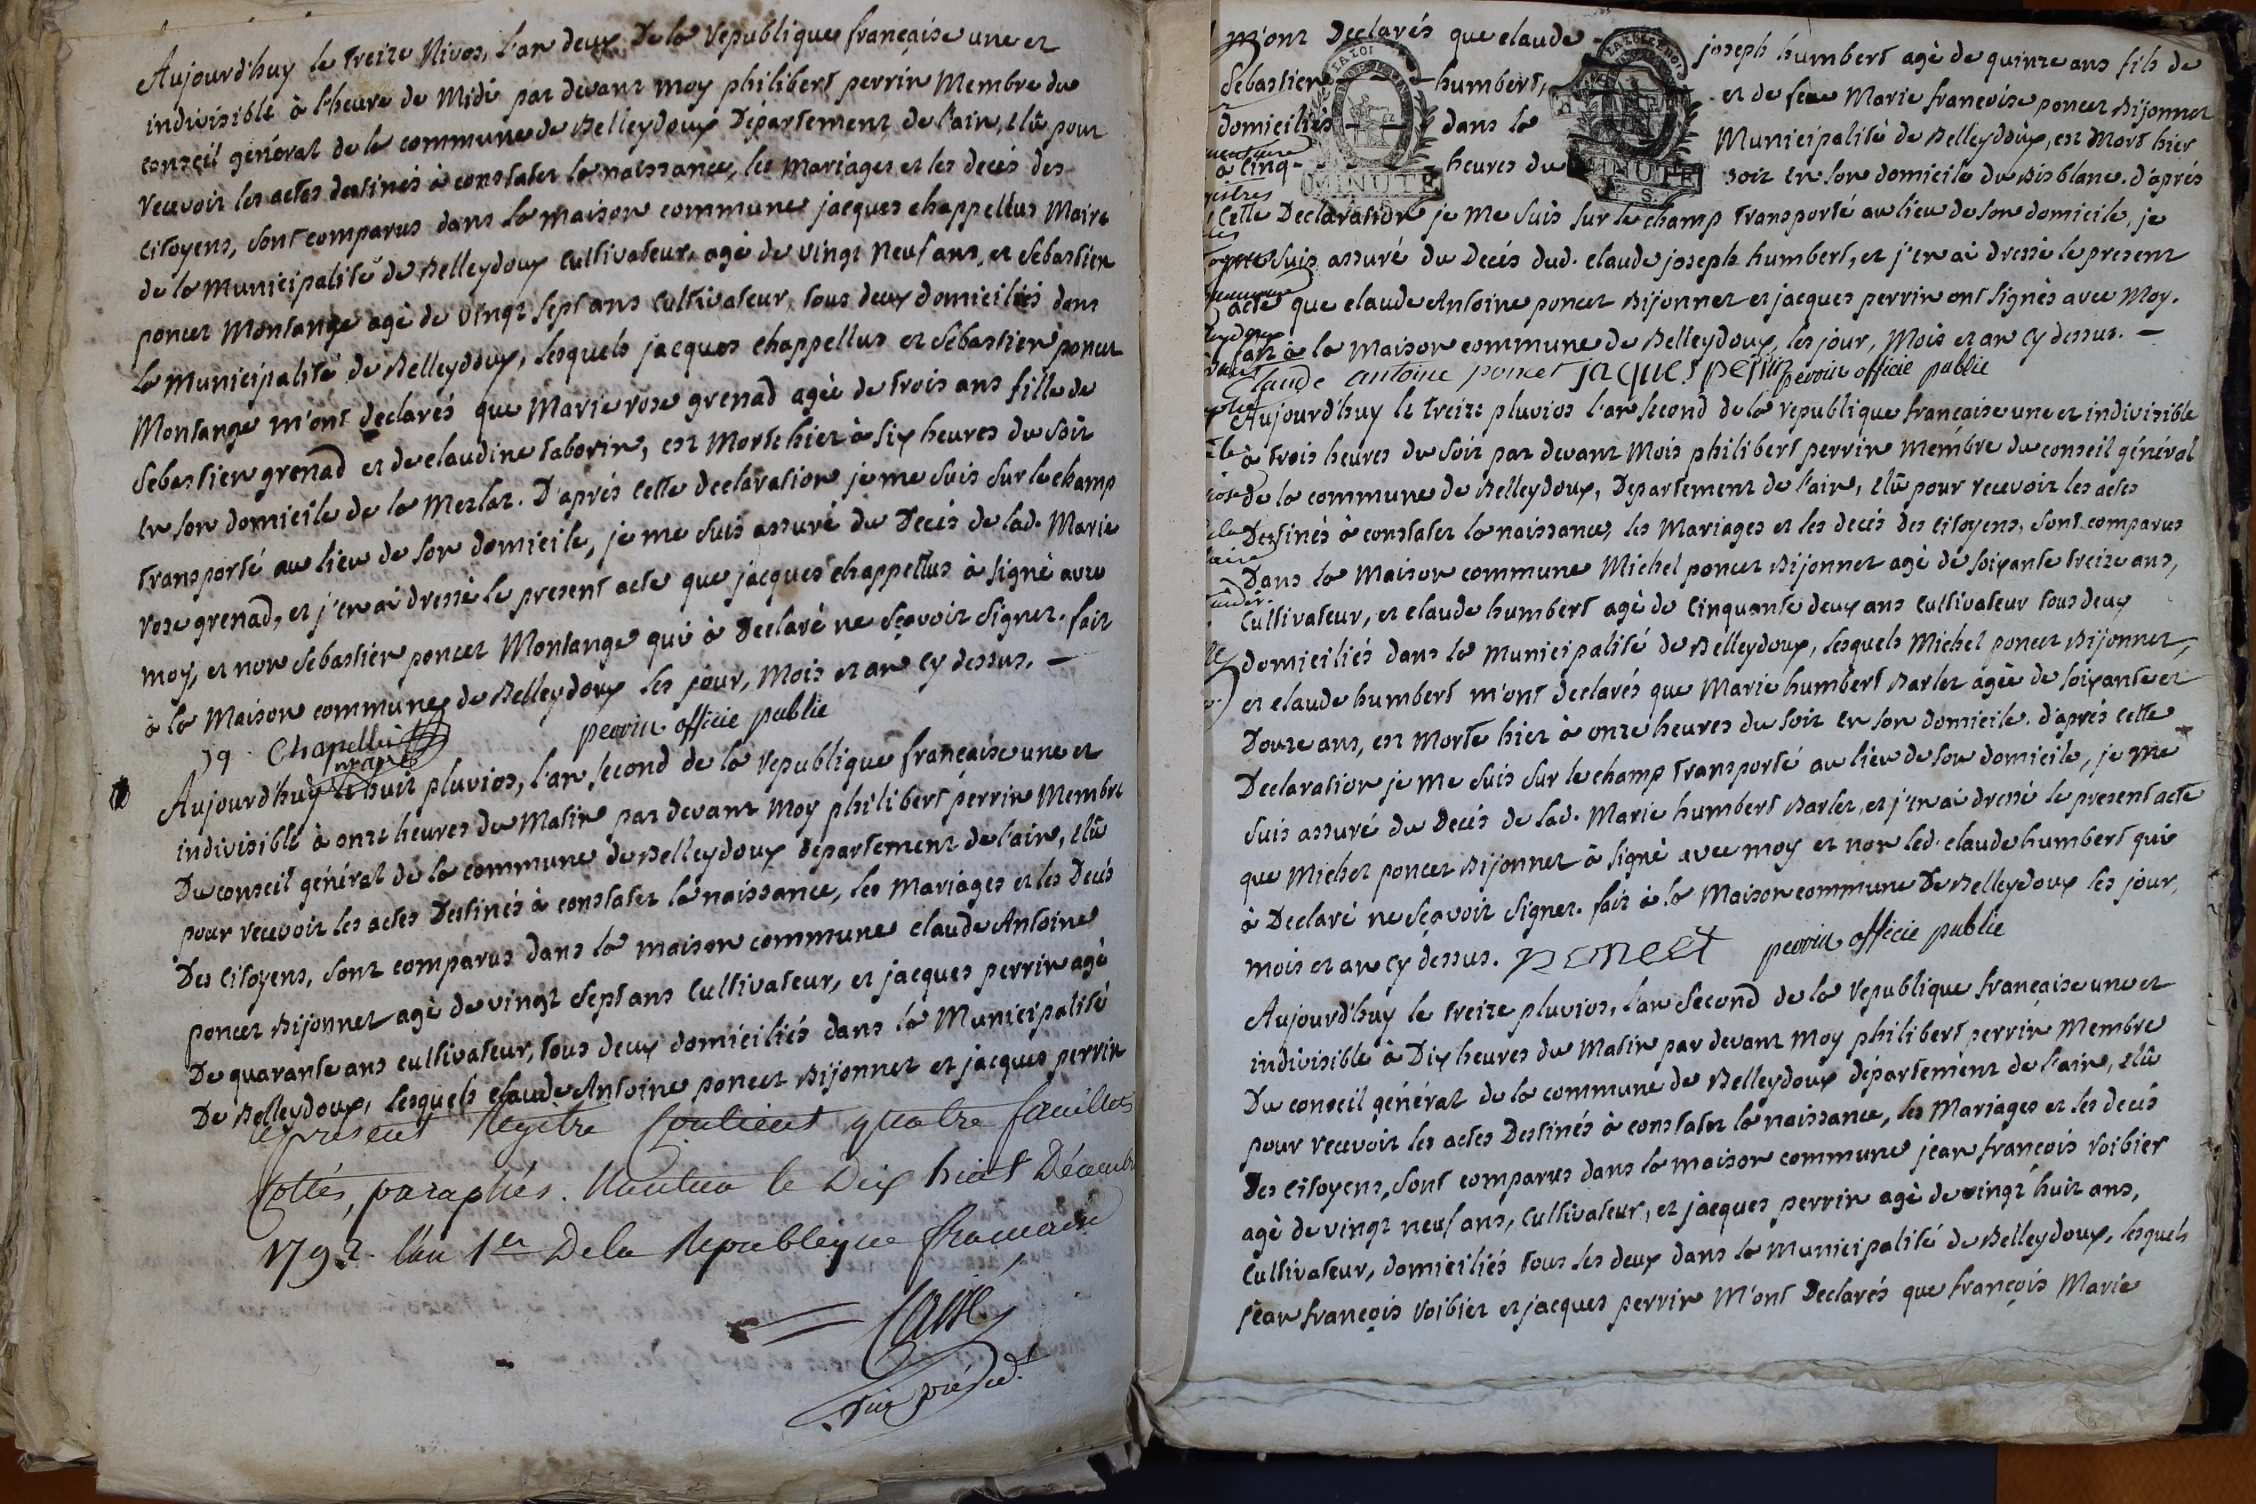 Aujourd'huy le treize Nivos, l'an deux De la republique française une et
indivisible à l'heure de Midi par devant moy philibert perrin Membre du
conseil général de la commune de Belleydoux Département de l'ain, elû pour
recevoir les actes destinés à constater la naissance, les mariages et les decés des
citoyens, sont comparus dans la maison commune jacques chappellus Maire
de la Municipalité de Belleydoux cultivateur, agé de vingt neuf ans, et Sebastien
poncet Montange agé de vingt sept ans cultivateur, tous deux domiciliés dans
la Municipalité de Belleydoux, lesquels jacques chappellus et Sebastien poncet
Montange m'ont declarés que Marie rose grenad agèe de trois ans fille de
Sebastien grenad et de claudine taborin, est Morte hier à six heures du soir
en son domicile de la Merlaz. D'aprés cette declaration je me suis sur le champ
transporté au lieu de son domicile, je me suis assuré du Decés de lad. Marie
rose grenad, et j'en ai dressé le present acte que jacques chappellus à signé avec
moy, et non Sebastien poncet Montange qui à Declaré ne sçavoir signer. fait
à la Maison commune de Belleydoux les jour, Mois et an cy dessus. —
Jq. Chapellu maire perrin officie public
Aujourd'huy le huit pluvios, l'an second de la republique française une et
indivisible à onze heures du Matin par devant Moy philibert perrin Membre
Du conseil général de la commune de Belleydoux département de l'ain, elû
pour recevoir les actes Destinés à constater la naissance, les mariages et les Decés
Des citoyens, sont comparus dans la maison commune claude Antoine
poncet Bijonnet agé de vingt sept ans cultivateur, et jacques perrin agé
De quarante ans cultivateur, tous deux domiciliés dans la Municipalité
De Belleydoux, lesquels claude Antoine poncet Bijonnet et jacques perrin
le present Regitre Contient quatre feuillets
Cottés, paraphés. Nantua le Dix huit Décembre
1792. l'an 1er De la Republique française
m'ont Declarés que claude joseph humbert agé de quinze ans fils de
Sebastien humbert, et de feue Marie françoise poncet Bijonnet
domiciliés dans la Municipalité de Belleydoux, est Mort hier
à cinq heures du soir en son domicile du Bisblanc. d'aprés
LA LOI
MINUTE
MINUTE
Cette Declaration je me suis sur le champ transporté au lieu de son domicile, je
me suis assuré du Decés dud. claude joseph humbert, et j'en ai dressé le present
acte que claude Antoine poncet Bijonnet et jacques perrin ont signés avec Moy.
fait à la Maison commune de Belleydoux, les jour, Mois et an cy dessus. —
Claude antoine poncet jacques perrin perrin officie public
Aujourd'huy le treize pluvios l'an second de la republique française une et indivisible
à trois heures du soir par devant Mois philibert perrin membre du conseil général
de la commune de Belleydoux, Departement de l'ain, elû pour recevoir les actes
Destinés à constater la naissance, les Mariages et les decés des citoyens, sont comparus
Dans la Maison commune Michel poncet Bijonnet agé de soixante treize ans,
cultivateur, et claude humbert agé de cinquante deux ans cultivateur tous deux
domiciliés dans la municipalité de Belleydoux, lesquels Michel poncet Bijonnet,
et claude humbert m'ont declarés que Marie humbert Barlet agèe de soixante et
Douze ans, est Morte hier à onze heures du soir en son domicile. d'aprés cette
Declaration je me suis sur le champ transporté au lieu de son domicile, je me
suis assuré du Decés de lad. Marie humbert Barlet, et j'en ai dressé le present acte
que Michel poncet Bijonnet à signé avec moy et non led. claude humbert qui
à Declaré ne sçavoir signer. fait à la Maison commune De Belleydoux les jour,
mois et an cy dessus. poncet perrin officie public
Aujourd'huy le treize pluvios, l'an Second de la republique française une et
indivisible à Dix heures du Matin par devant Moy philibert perrin Membre
Du conseil général de la commune de Belleydoux département de l'ain, elû
pour recevoir les actes Destinés à constater la naissance, les Mariages et les decés
Des citoyens, sont comparus dans la maison commune jean françois Voibier
agé de vingt neuf ans, cultivateur, et jacques perrin agé de vingt huit ans,
cultivateur, domiciliés tous les deux dans la Municipalité de Belleydoux, lesquels
jean françois Voibier et jacques perrin M'ont Declarés que françois Marie